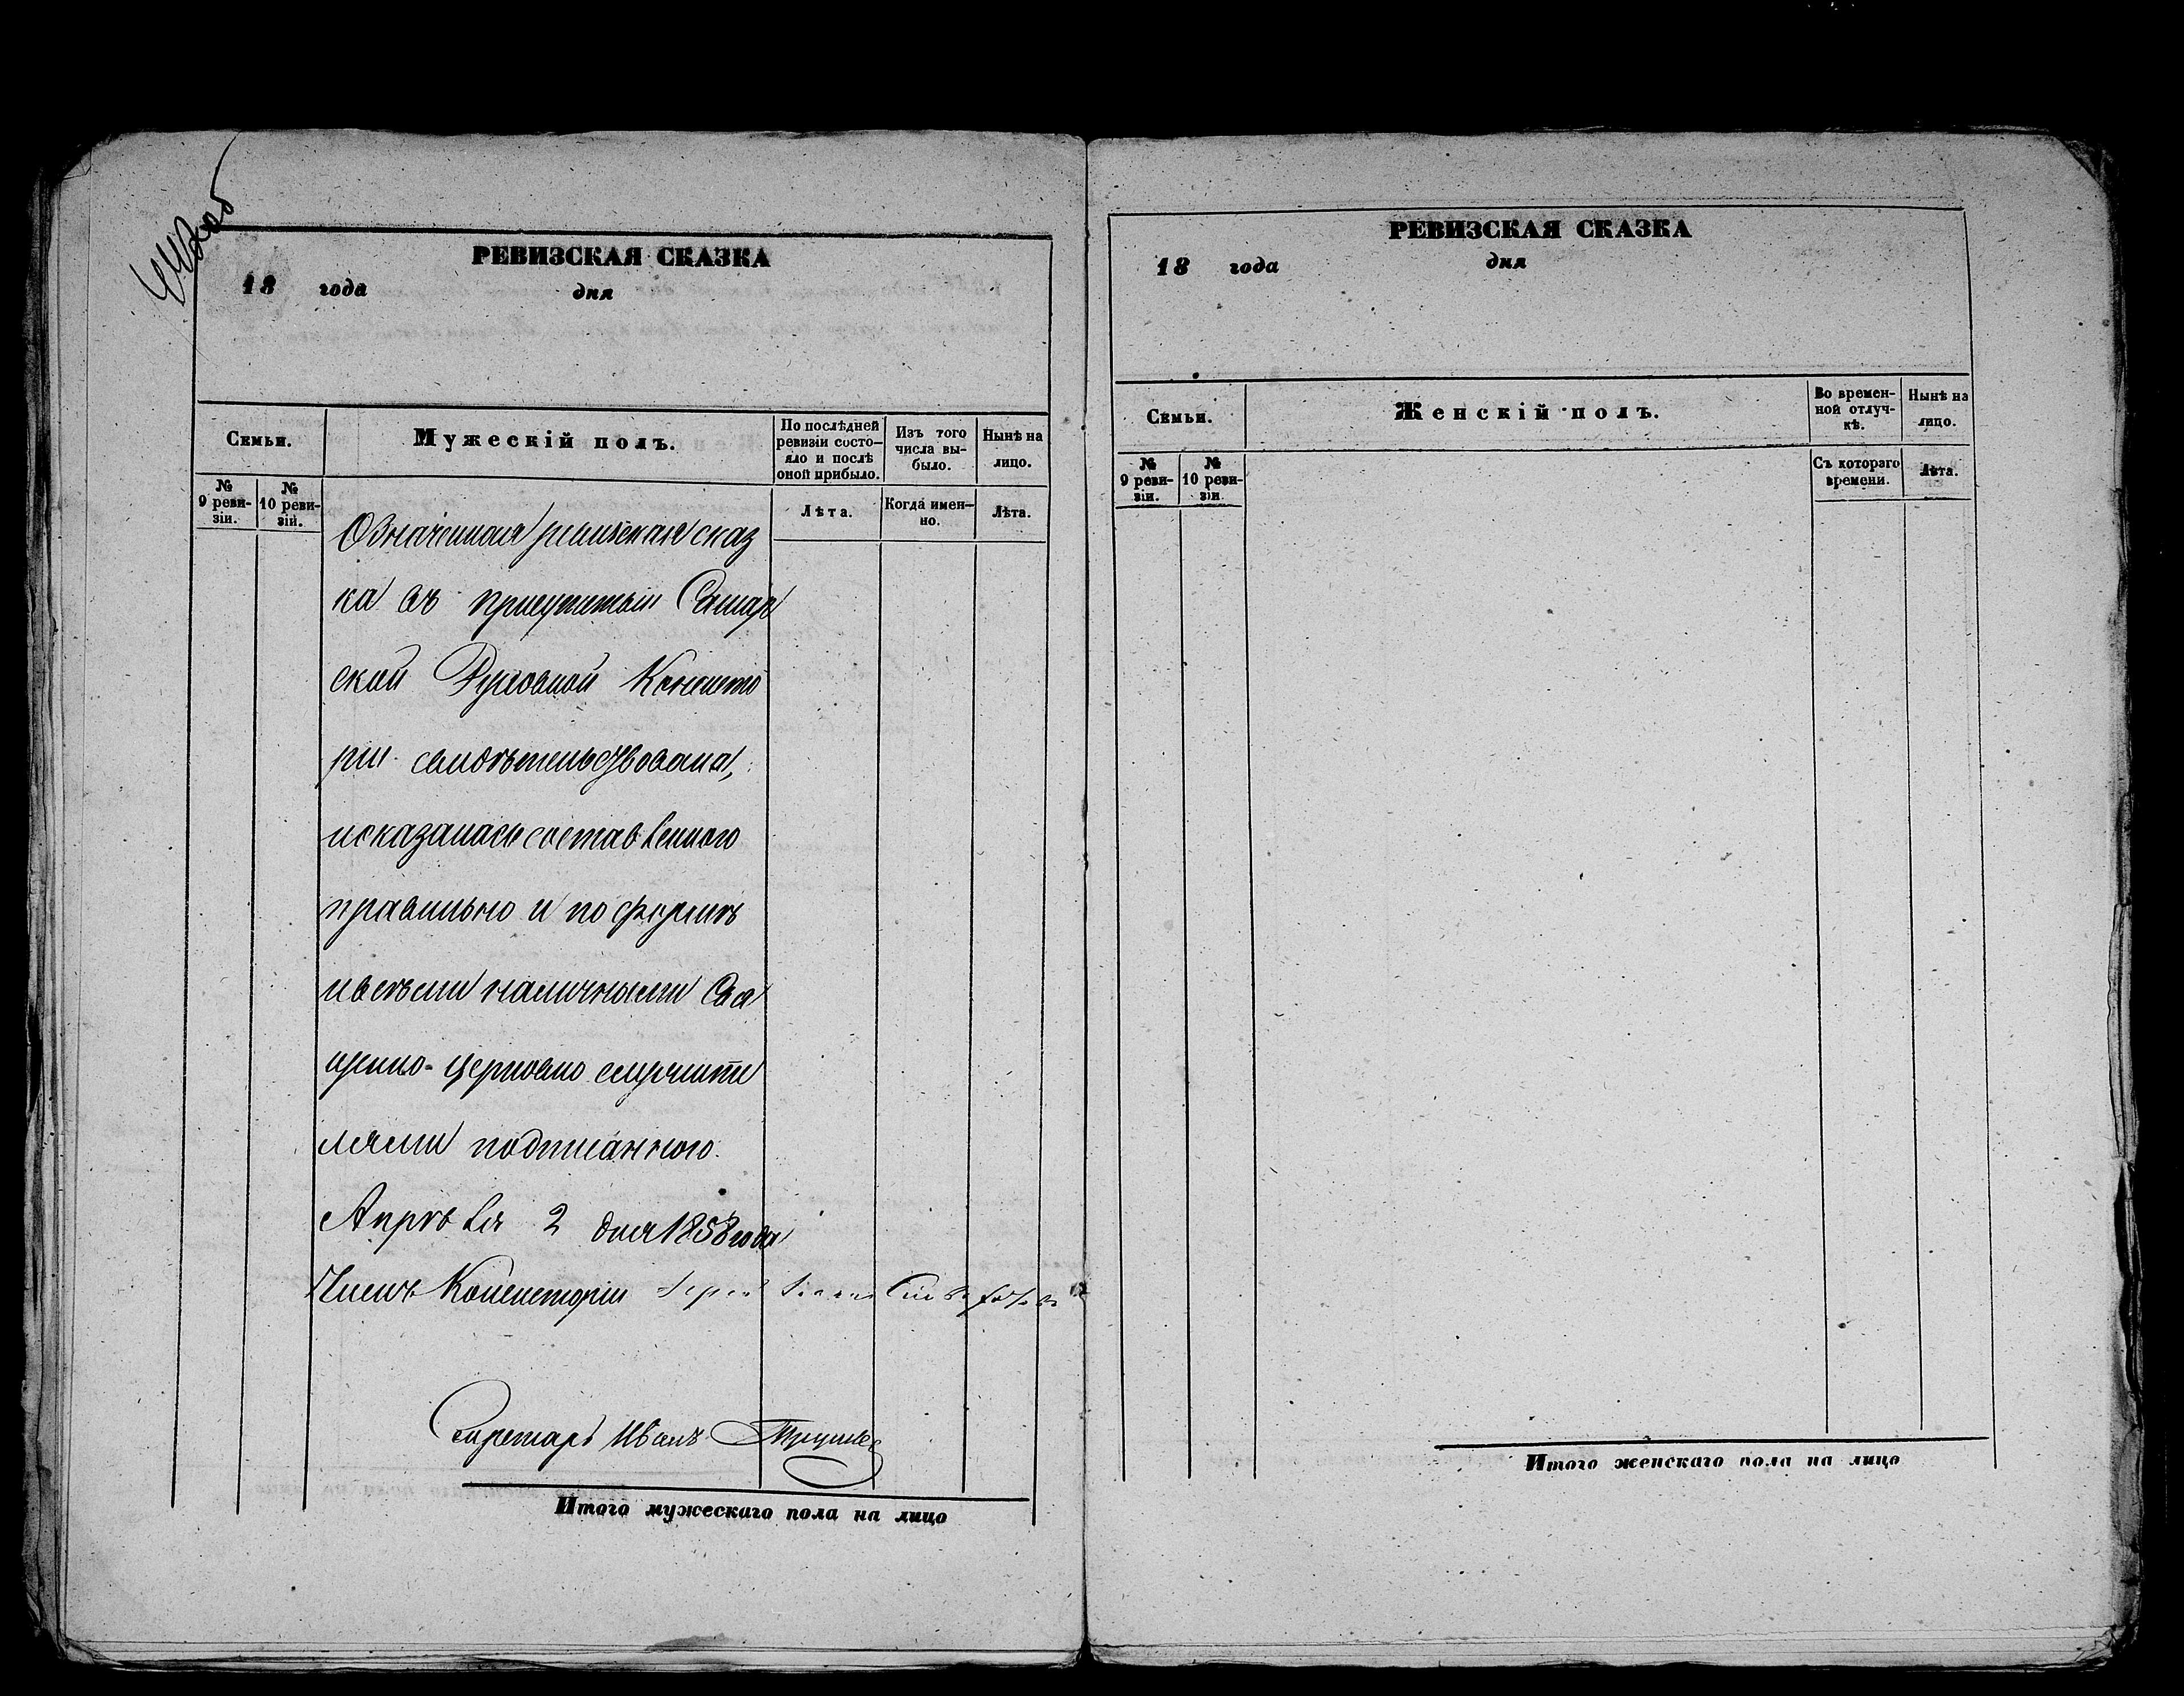 РЕВИЗСКАЯ СКАЗКА
18 года дня
Семьи.
Мужескій полъ.
По послѣдней
ревизіи состо—
яло и послѣ
оной прибыло.
Изъ того
числа вы-
было.
Нынѣ на
лицо.
№
9 реви-
зіи.
№
10 реви-
зій.
Лѣта.
Когда имен—
но.
Лѣта.
Означенная ревизская сказ
ка въ присутствіи Самар
ской Духовной Консисто
ріи свидѣтельствована,
и оказалась составленною
правильно и по формѣ
и всѣми наличными Свя
щенно-церковно служите
лями подписанною.
Апрѣля 2 дня 1858 года
Членъ Консисторіи
Секретарь Иванъ
Итого мужескаго пола на лицо
РЕВИЗСКАЯ СКАЗКА
18 года дня
Семьи.
Женскій полъ.
Во времен-
ной отлуч-
кѣ.
Нынѣ на
лицо.
№
9 реви-
зіи.
№
10 реви-
зіи.
Съ котораго
времени.
Лѣта.
Итого женскаго пола на лицо